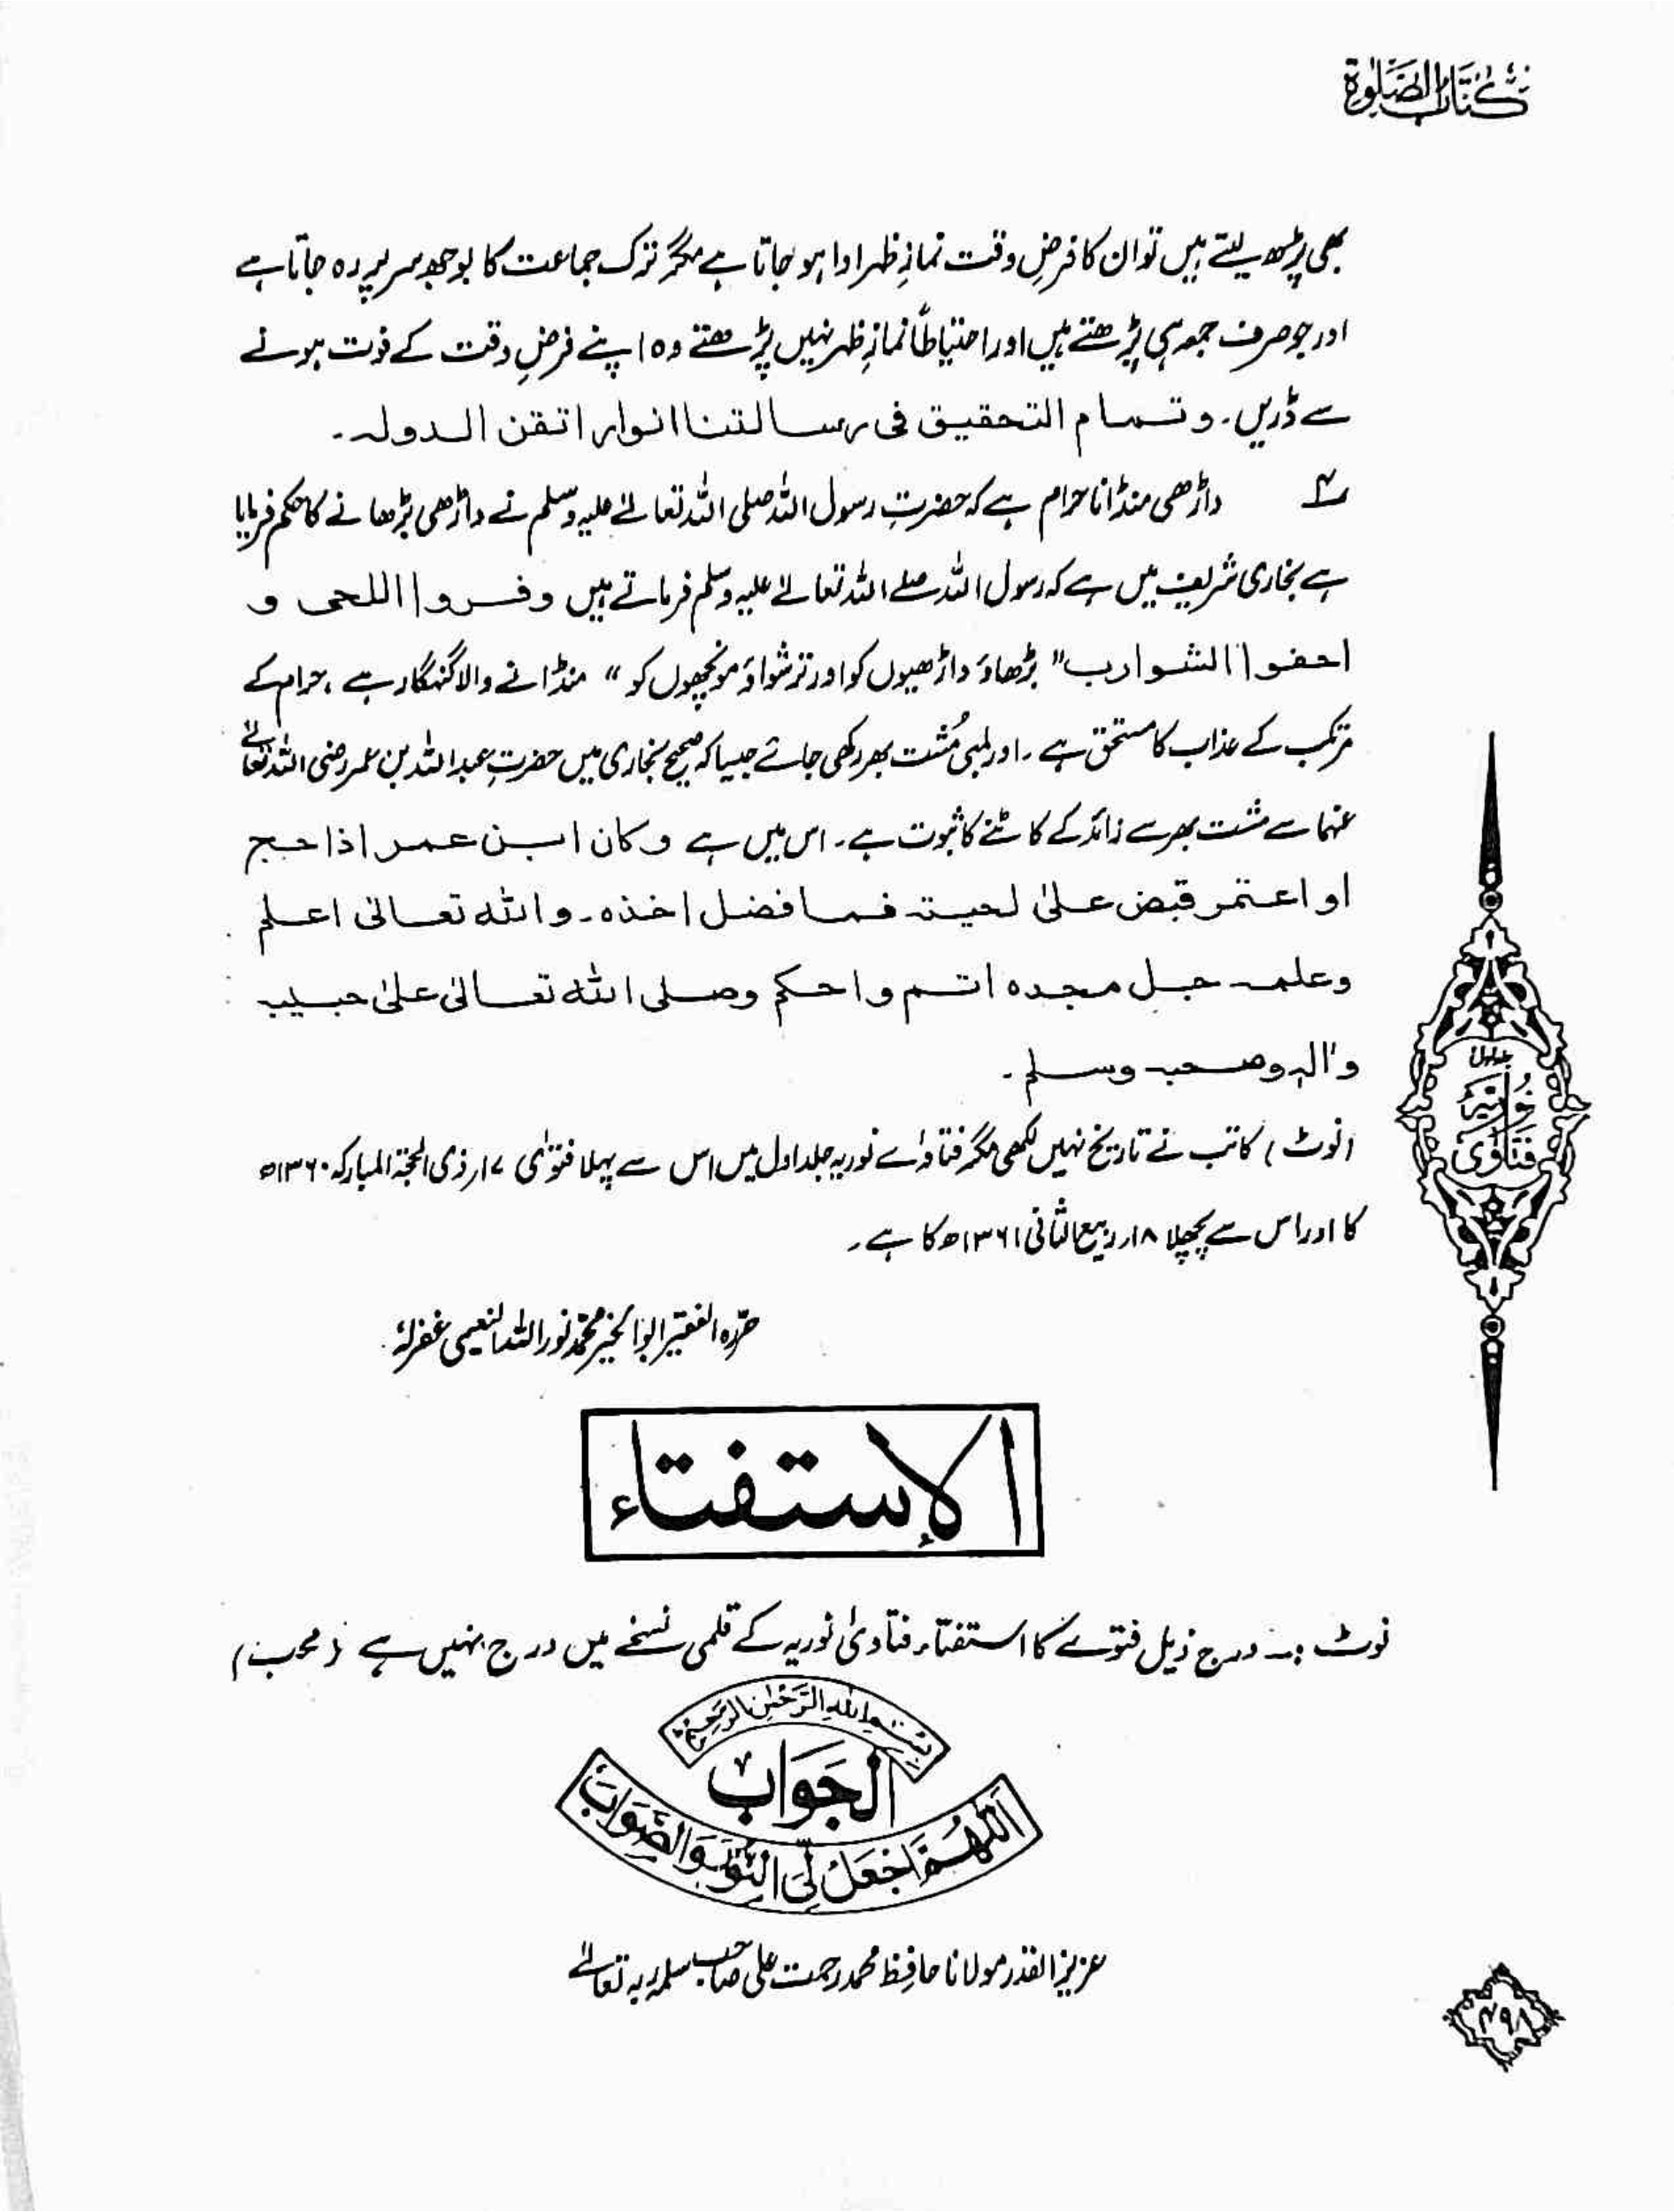 كتاب الصلوة
بھی پڑھ لیتے ہیں تو ان کا فرضِ وقت نمازِ ظہر ادا ہو جاتا ہے مگر ترک جماعت کا بوجھ سر پر رہ جاتا ہے
اور جو صرف جمعہ ہی پڑھتے ہیں اور احتیاطاً نمازِ ظہر نہیں پڑھتے وہ اپنے فرضِ وقت کے فوت ہونے
سے ڈریں۔ وتمام التحقيق فى رسالتنا انوار اتقن الدولہ۔
۴ داڑھی منڈانا حرام ہے کہ حضرتِ رسول اللہ صلی اللہ تعالےٰ علیہ وسلم نے داڑھی بڑھانے کا حکم فرمایا
ہے بخاری شریف میں ہے کہ رسول اللہ صلے اللہ تعالےٰ علیہ وسلم فرماتے ہیں وفروا اللحى و
احفوا الشوارب " بڑھاؤ داڑھیوں کو اور ترشواؤ مونچھوں کو " منڈانے والا گنہگار ہے ، حرام کے
مرتکب کے عذاب کا مستحق ہے ۔ اور لمبی مُشت بھر رکھی جائے جیسا کہ صحیح بخاری میں حضرتِ عبداللہ بن عمر رضی اللہ تعالےٰ
عنہما سے مشت بھر سے زائد کے کاٹنے کا ثبوت ہے۔ اس میں ہے وكان ابن عمر اذا حج
او اعتمر قبض علىٰ لحيتہ فما فضل اخذه۔ والله تعالىٰ اعلم
وعلمہ جل مجده اتم واحكم وصلى الله تعالىٰ علىٰ حبيبہ
واٰلہ وصحبہ وسلم۔
(نوٹ) کاتب نے تاریخ نہیں لکھی مگر فتاوٰے نوریہ جلد اول میں اس سے پہلا فتوٰی ۱۷ر ذی الحجۃ المبارکہ ۱۳۶۰ھ
کا اور اس سے پچھلا ۱۸ر ربیع الثانی ۱۳۶۱ھ کا ہے۔
حرّرہ الفقیر ابوالخیر محمد نور اللہ النعیمی غفرلہٗ
جلد اول
نوریہ
فتاوٰی
الإستفتاء
نوٹ :۔ درجِ ذیل فتوے کا استفتاء فتاوٰی نوریہ کے قلمی نسخے میں درج نہیں ہے (محب)
بسم الله الرحمٰن الرحيم
الجواب
اللهم اجعل لى النور والصواب
عزیز القدر مولانا حافظ محمد رحمت علی صاحب سلمہ ربہ تعالےٰ
۴۹۸